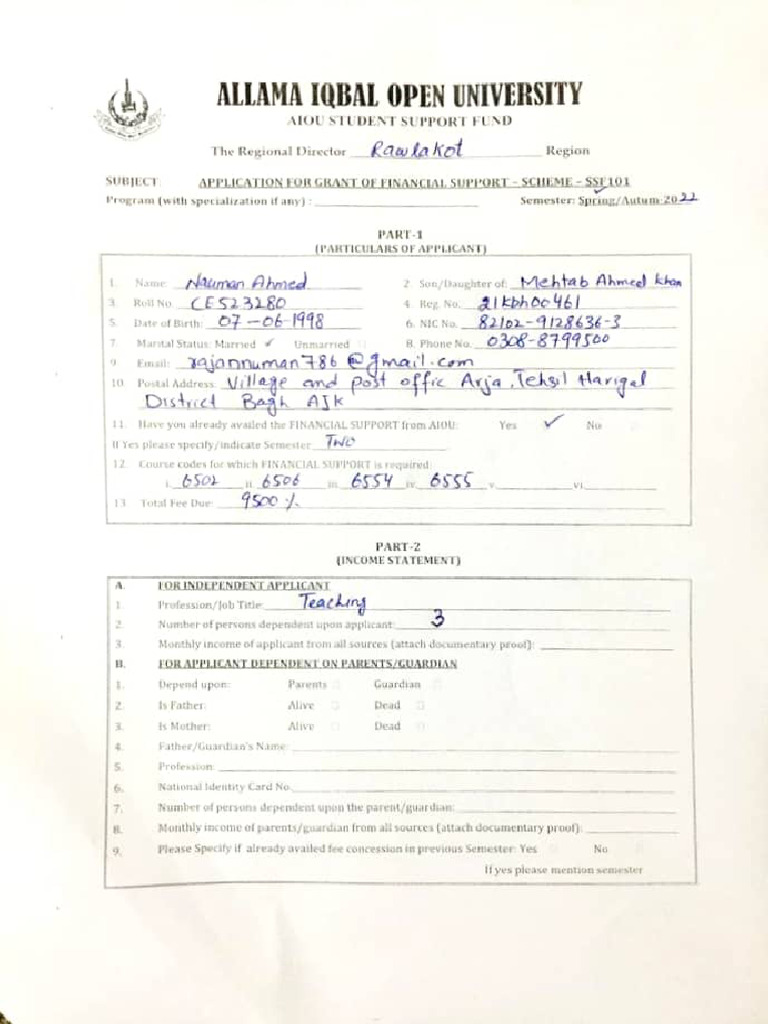 ALLAMA IQBAL OPEN UNIVERSITY
AIOU STUDENT SUPPORT FUND
The Regional Director Rawlakot Region
SUBJECT: APPLICATION FOR GRANT OF FINANCIAL SUPPORT - SCHEME - SSF101
Program (with specialization if any) : Semester: Spring/Autum-2022
PART-1
(PARTICULARS OF APPLICANT)
1. Name: Nauman Ahmed 2. Son/Daughter of: Mehtab Ahmed Khan
3. Roll No CE523280 4. Reg. No. 21kbh00461
5. Date of Birth: 07-06-1998 6. NIC No. 82102-9128636-3
7. Marital Status: Married ✓ Unmarried 8. Phone No. 0308-8799500
9. Email: rajannuman786@gmail.com
10. Postal Address: Village and post offic Arja, Tehsil Harigal
District Bagh AJK
11. Have you already availed the FINANCIAL SUPPORT from AIOU: Yes ✓ No
If Yes please specify/indicate Semester Two
12. Course codes for which FINANCIAL SUPPORT is required:
i. 6502 ii. 6506 iii. 6554 iv. 6555 v. vi.
13. Total Fee Due: 9500/.
PART-2
(INCOME STATEMENT)
A. FOR INDEPENDENT APPLICANT
1. Profession/Job Title: Teaching
2. Number of persons dependent upon applicant: 3
3. Monthly income of applicant from all sources (attach documentary proof):
B. FOR APPLICANT DEPENDENT ON PARENTS/GUARDIAN
1. Depend upon: Parents Guardian
2. Is Father: Alive Dead
3. Is Mother: Alive Dead
4. Father/Guardian's Name:
5. Profession:
6. National Identity Card No.
7. Number of persons dependent upon the parent/guardian:
8. Monthly income of parents/guardian from all sources (attach documentary proof):
9. Please Specify if already availed fee concession in previous Semester: Yes No
If yes please mention semester